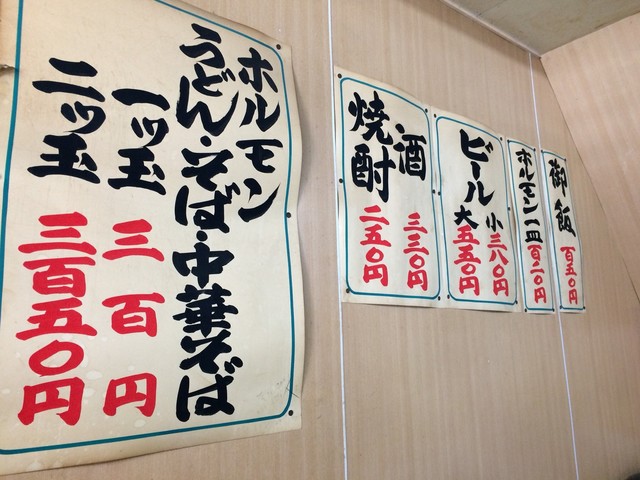 御飯 百五〇円
ホルモン一皿 百二〇円
ビール
小 三八〇円
大 五五〇円
酒 三三〇円
焼酎 二五〇円
ホルモン
うどん・そば・中華そば
一ッ玉 三百円
二ッ玉 三百五〇円